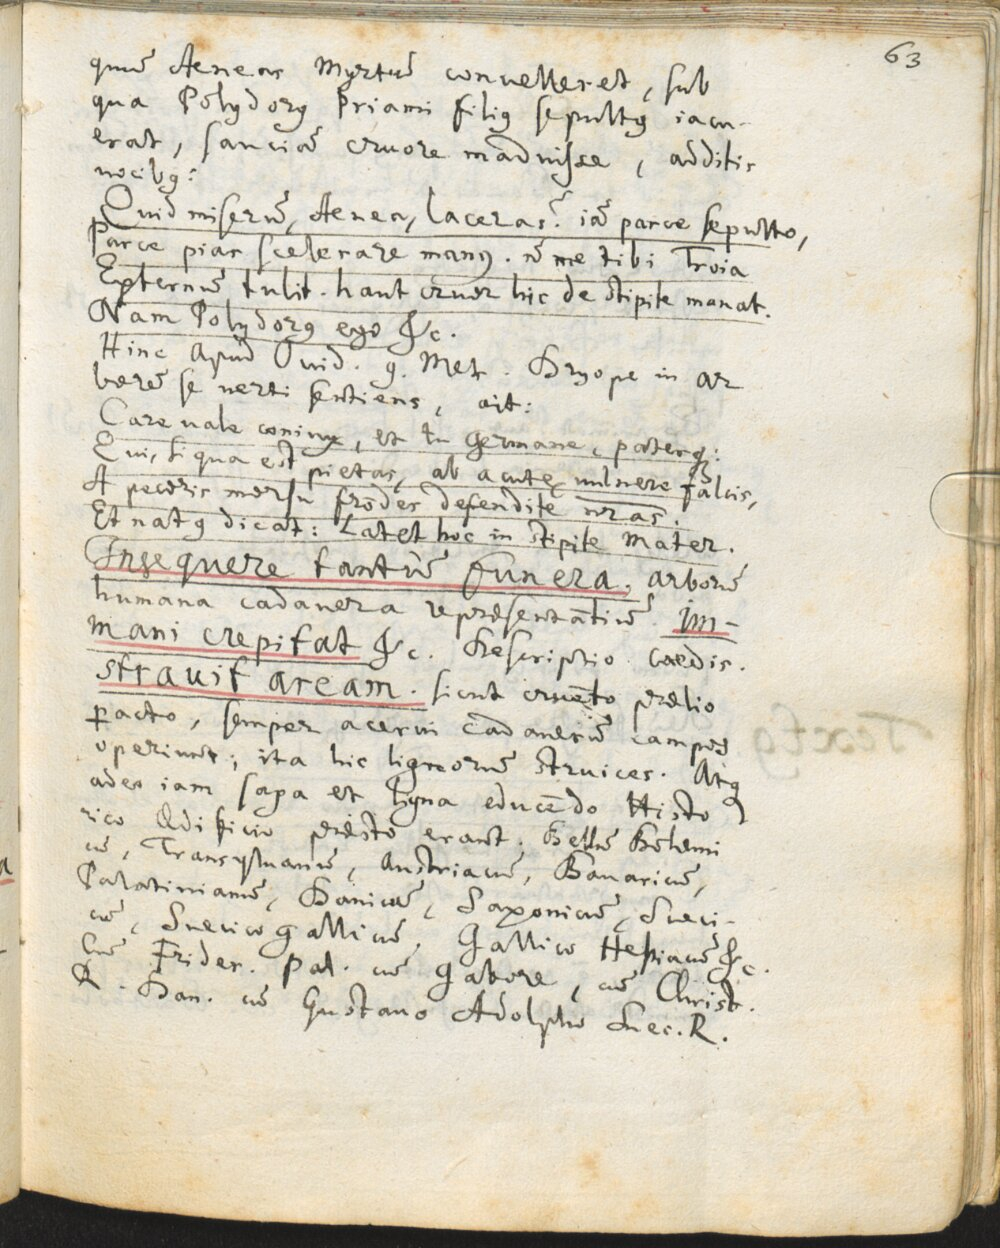 63
quū Aeneas Myrtū conuelleret, sub
qua Polydorꝯ Priami filiꝯ sepultꝯ iacu-
erat, sanciā cruore maduisse, additis
uocibꝯ:
Quid miserū, Aenea, laceras? iā parce sepulto,
Parce pias scelerare manꝯ. nō me tibi Troia
Externū tulit. haut cruor hic de stipite manat.
Nam Polydorꝯ ego &c.
Hinc apud Ouid. 9. Met. Dryope in ar
borē se uerti sentiens, ait:
Care uale coniux, et tu germane, paterqꝫ:
Qui, si qua est pietas, ab acutę uulnere falcis,
A pecoris morsu frōdes defendite nr̄as.
Et natꝯ dicat: Latet hoc in stipite Mater.
Insequere tantū funera. arborū
humana cadauera repręsentātiū. Im-
mani crepitat &c. Descriptio caedis.
strauit aream. sicut cruēto prælio
ꝑacto, semper acerui cadauerū campos
operiunt; ita hic ligneorū struices. Atqꝫ
adeo iam saxa et ligna educēdo Histo
rico Ædificio præsto erant. Bellū Bohemi
cū, Transyluanū, Austriacū, Bauaricū,
Palatinianū, Danicū, Saxonicū, Sueci-
cū, Suecicogallicū, Gallico Hessiacū &c.
Cū Frider. Pal. cū Gabore, cū Christ.
R. Dan. cū Gustauo Adolpho Suec. R.